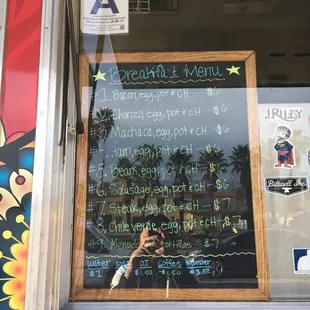 A
Breakfast Menu
#1. Bacon, egg, pot & CH - $6
#2. Chorizo, egg, pot & CH - $6
#3. Machaca, egg, pot & CH - $6
ham, egg, pot & CH - $6
#5. Bean, egg, pot & CH - $6
#6. Sausage, egg, pot & CH - $6
#7. Steak, egg, pot & CH - $7
#8. Chile verde, egg, pot & CH - $7
#9. Menudo tortillas - $7
Water Soda OJ Coffee Monster
$1 $1.50 $1.50 $3.00
J.RILEY
Biltwell Inc.